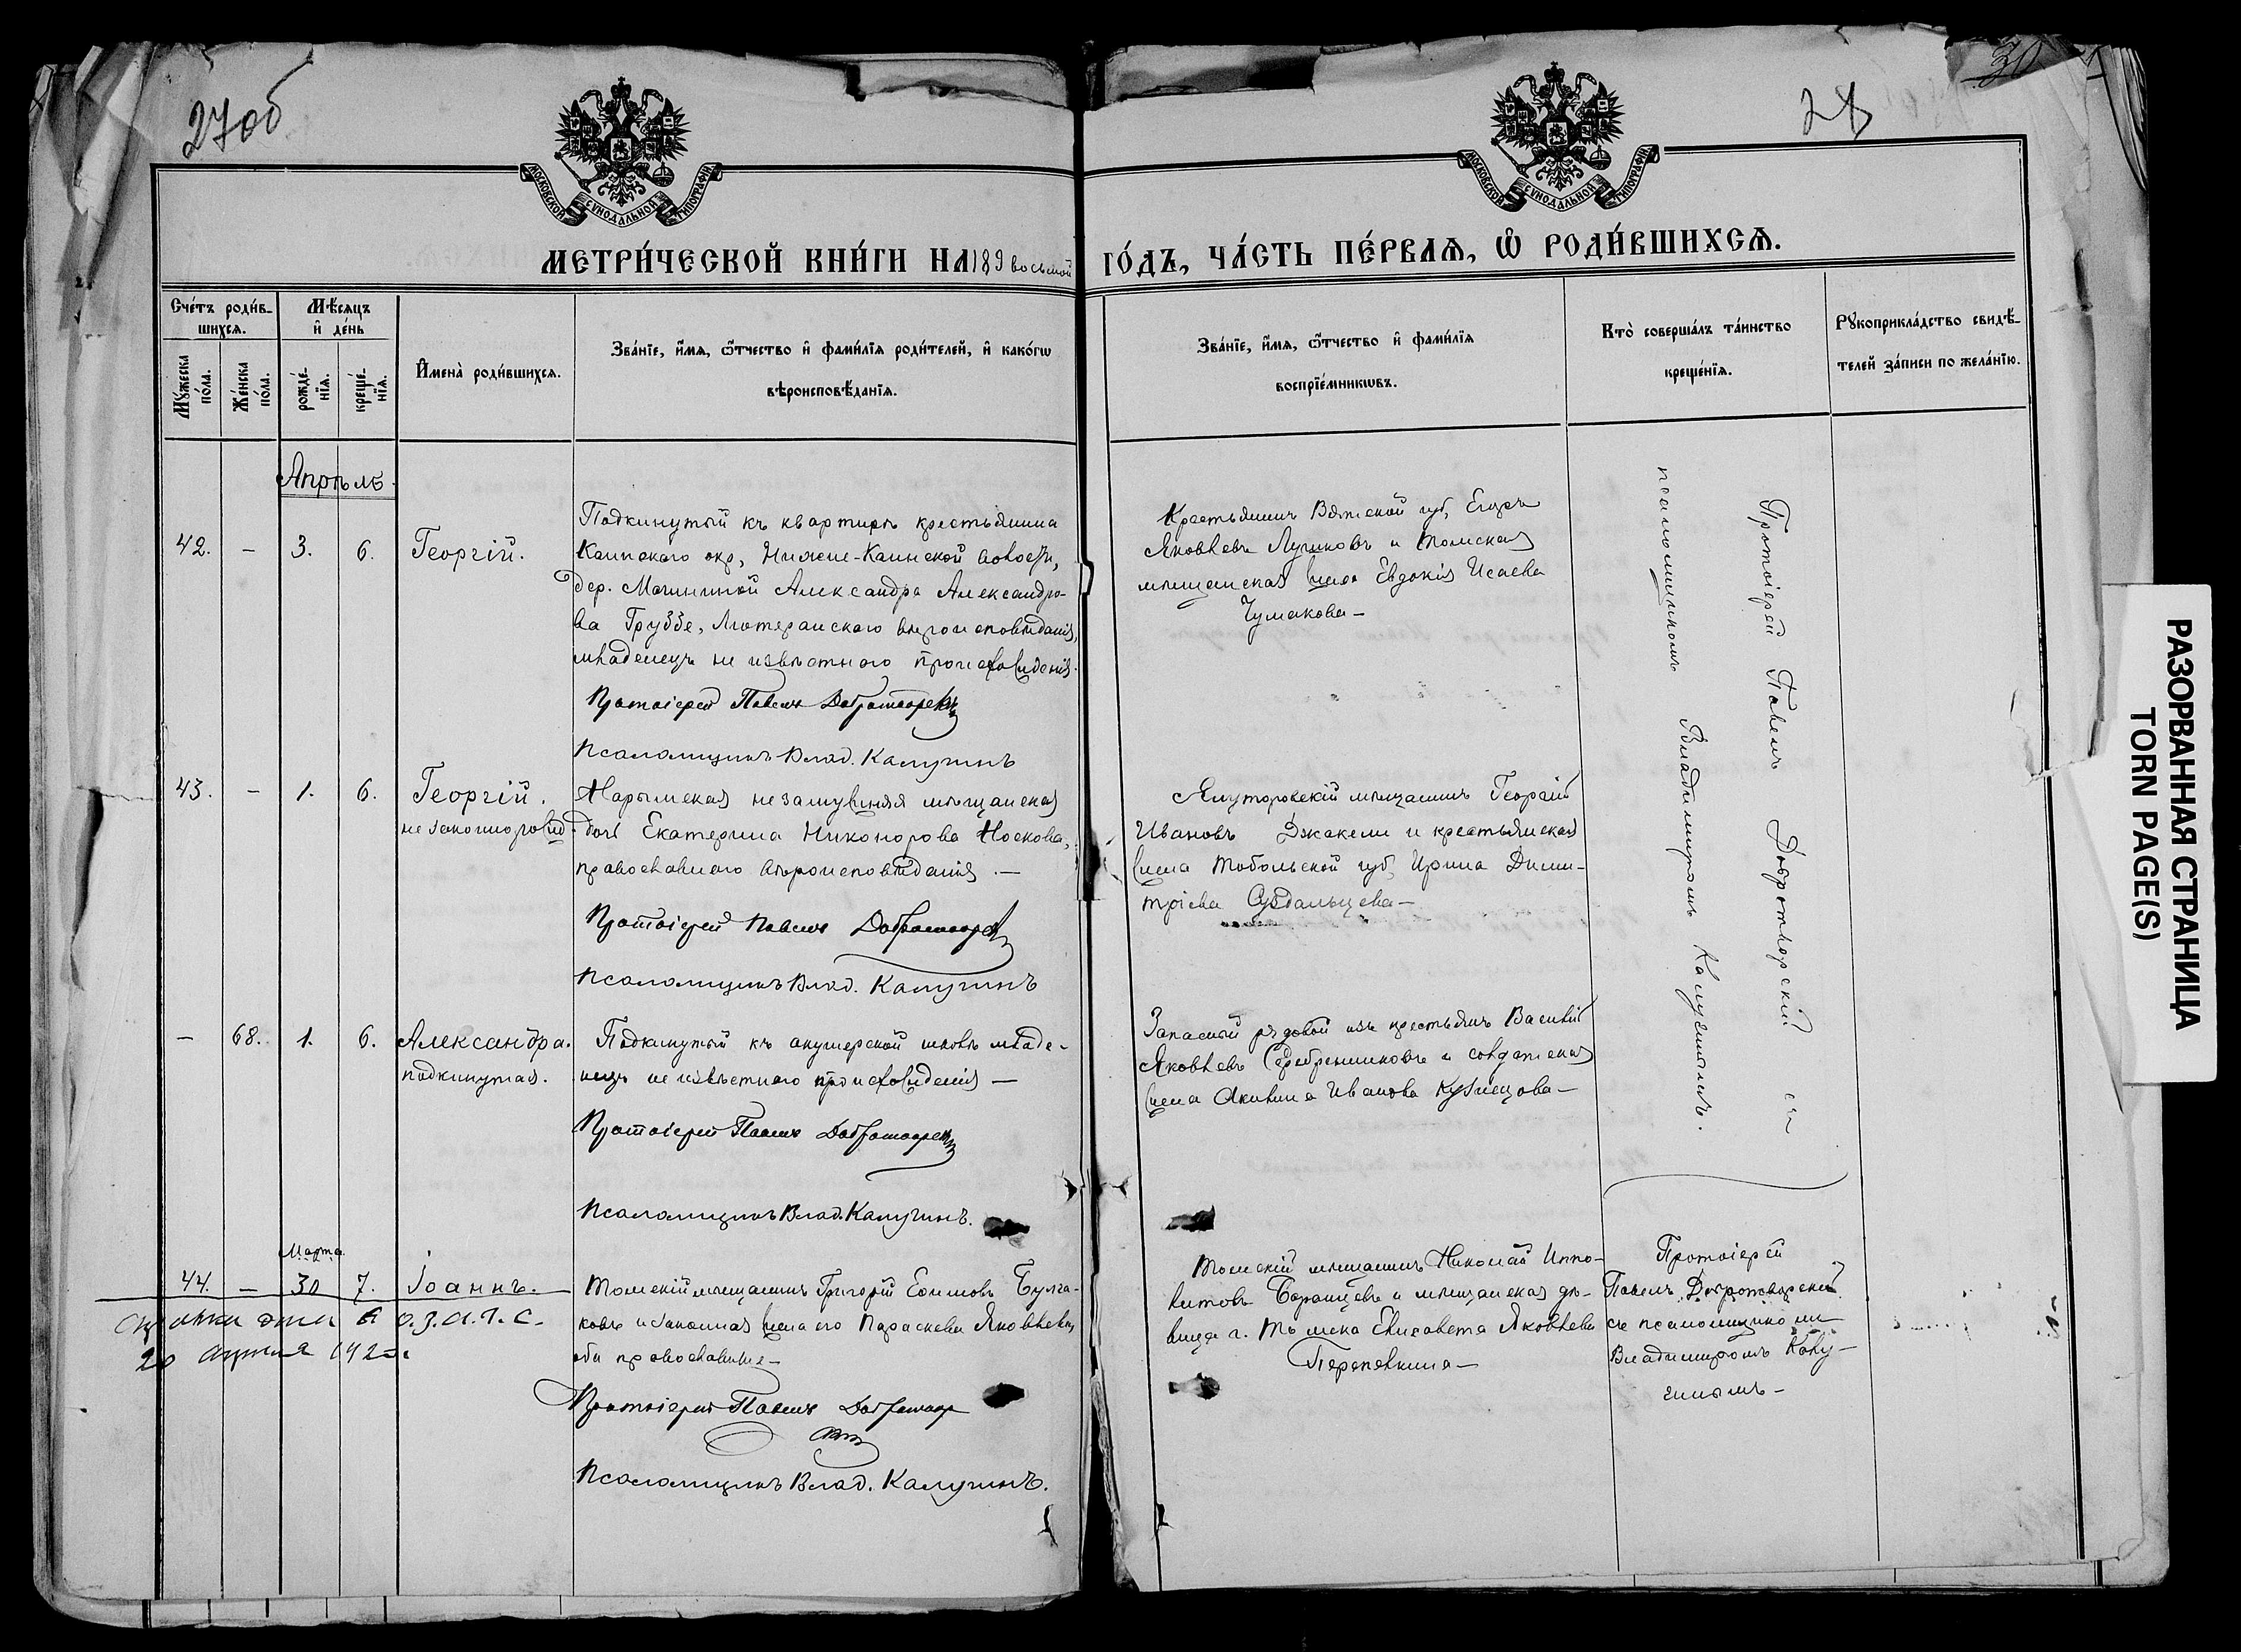 27об
28
30
МОСКОВСКОЙ СѴНОДАЛЬНОЙ ТИПОГРАФІИ
МОСКОВСКОЙ СѴНОДАЛЬНОЙ ТИПОГРАФІИ
МЕТРИ́ЧЕСКОЙ КНИ́ГИ НА 189 восьмой ГО́ДЪ, ЧА́СТЬ ПЕ́РВАѦ, Ѡ РОДИ́ВШИХСѦ.
Сче́тъ роди́в-
шихсѧ.
Мѣ́сѧцъ
и҆ де́нь
Мꙋ́жеска по́ла.
Же́нска по́ла.
рожде́-нїѧ.
креще́-нїѧ.
И҆мена̀ роди́вшихсѧ.
Зва́нїе, и҆́мѧ, ѻ҆́тчество и҆ фами́лїѧ роди́телей, и҆ како́гѡ
вѣроисповѣ́данїѧ.
Зва́нїе, и҆́мѧ, ѻ҆́тчество и҆ фами́лїѧ
воспрїе́мникѡвъ.
Кто̀ соверша́лъ та́инство
креще́нїѧ.
Рꙋкоприкла́дство свидѣ́-
телей за́писи по жела́нїю.
Апрѣль.
42. – 3. 6. Георгій.
Подкинутый къ квартирѣ крестьянина
Каинскаго окр, Нижне-Каинской волости,
дер. Александра Александро-
ва Груббе, Лютеранскаго вѣроисповѣданія,
младенецъ не извѣстнаго происхожденія.
Протоіерей Павелъ Добротворскій
Псаломщикъ Влад. Калугинъ
Крестьянинъ Вятской губ, Егоръ
Яковлевъ и Томская
мѣщанская жена Евдокія Исаева
Чумакова –
Протоіерей Павелъ Добротворскій съ
псаломщикомъ Владиміромъ Калугинымъ.
43. – 1. 6. Георгій.
незаконнорожд
Нарымская незамужняя мѣщанская
дочь Екатерина Никонорова Носкова,
православнаго вѣроисповѣданія. –
Протоіерей Павелъ Добротворскій
Псаломщикъ Влад. Калугинъ
Ялуторовскій мѣщанинъ Георгій
Ивановъ Джакели и крестьянская
жена Тобольской губ, Ирина Дими-
тріева Суздальцева –
– 68. 1. 6. Александра.
подкинутая.
Подкинутый къ акушерской школѣ младе-
нецъ не извѣстнаго происхожденія –
Протоіерей Павелъ Добротворскій
Псаломщикъ Влад. Калугинъ.
Запасный рядовой изъ крестьянъ Василій
Яковлевъ Серебренниковъ и солдатская
жена Акилина Иванова Кузнецова –
Марта
44. – 30 7. Іоаннъ.
Томскій мѣщанинъ Григорій Ефимовъ Булга-
ковъ и законная жена его Параскева Яковлева,
оба православные –
Протоіерей Павелъ Добротвор
скій
Псаломщикъ Влад. Калугинъ.
Томскій мѣщанинъ Николай Иппо-
литовъ Баранцевъ и мѣщанская дѣ-
вица г. Томска Елисавета Яковлева
Перепелкина –
Протоіерей
Павелъ Добротворскій
съ псаломщикомъ
Владиміромъ Калу-
гинымъ –
дана З.А.Г.С.
20 апреля 192
РАЗОРВАННАЯ СТРАНИЦА
TORN PAGE(S)